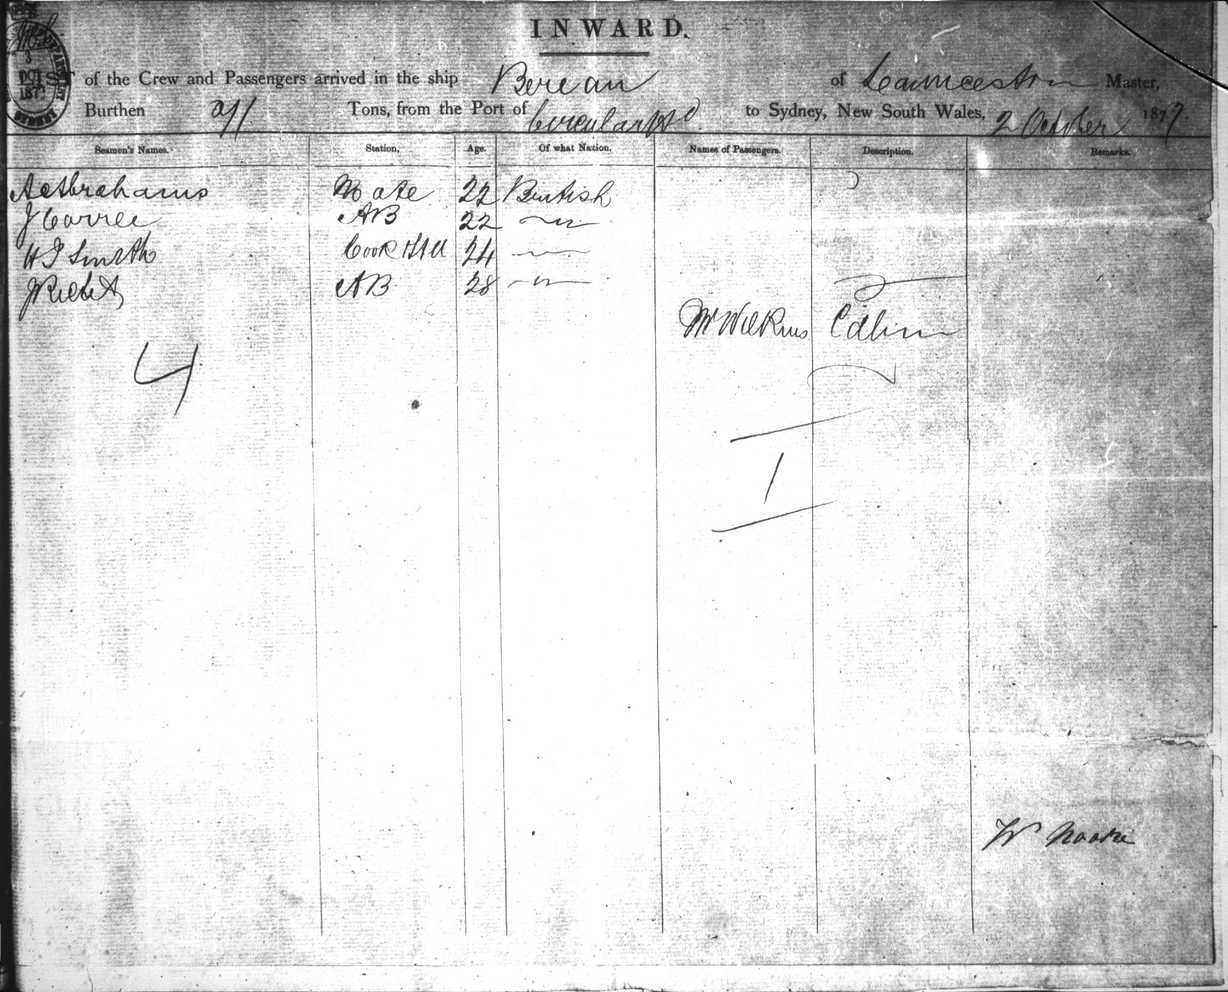 INWARD.
LIST of the Crew and Passengers arrived in the ship Berean of Launceston Master,
Burthen Tons, from the Port of Circular to Sydney, New South Wales, 2 October 1877
Seamen's Names. Station, Age. Of what Nation. Names of Passengers. Description. Remarks.
A Abrahams Mate 22 British
J Carree AB 22 — " —
H J Smith Cook & AB 24 — " —
J AB 28 — " —
Mr Wilkins Cabin
4
1
W Moore